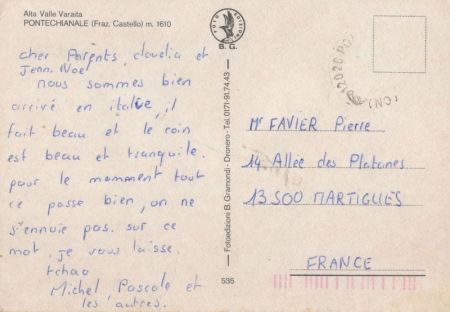 Alta Valle Varaita
PONTECHIANALE (Fraz. Castello) m. 1610
cher Parents, claudia et
Jean. Noel
nous sommes bien
arrivé en italie, il
fait beau et le coin
est beau et tranquile.
pour le momment tout
ce passe bien, on ne
s'ennuie pas. sur ce
mot. je vous laisse.
tchao
Michel, Pascale et
les autres.
FOTO EDIZIONI
B. G.
Fotoedizioni B. Gramondi - Dronero - Tel. 0171-91.74.43
535
12020 PO
(CN)
Mr FAVIER Pierre
14 Allée des Platanes
13 500 MARTIGUES
FRANCE